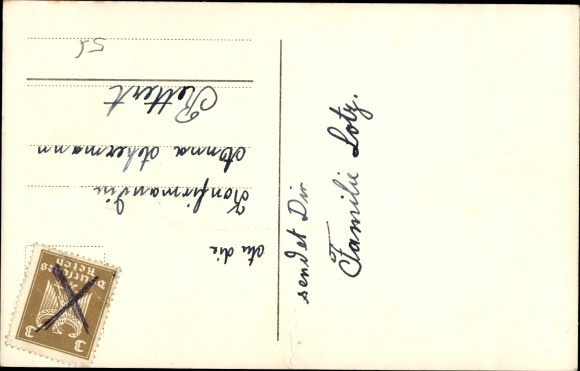 An die
Konfirmandin
Anna Ackermann
Rettert
sendet Dir
Familie Lotz.
Deutsches
Reich
3 3